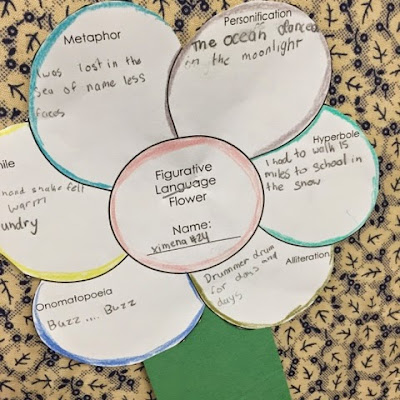 Metaphor
I was lost in the
sea of name less
faces
Personification
The ocean danced
in the moonlight
Hyperbole
I had to walk 15
miles to school in
the snow
Alliteration
Drummer drum
for days and
days
Onomatopoeia
Buzz .... Buzz
hand shake fell
warm
undry
Figurative
Language
Flower
Name:
ximena #24